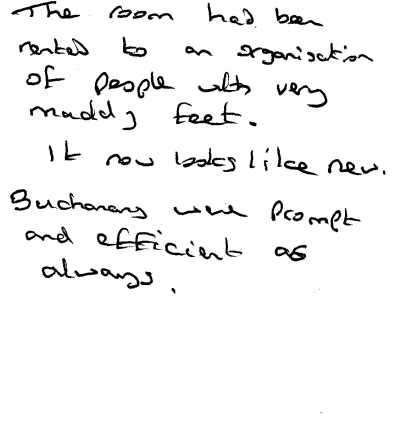 The room had been
rented to an organisation
of people with very
muddy feet.
It now looks like new.
Buchanans were prompt
and efficient as
always.